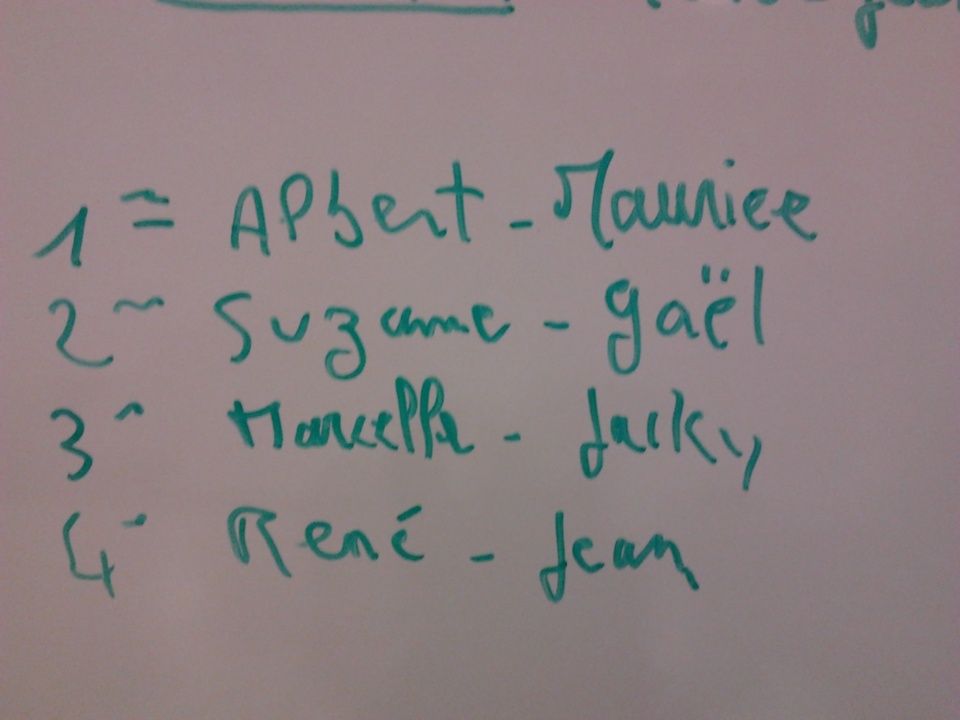 1 = Albert - Maurice
2 - Suzanne - Gaël
3 - Marcelle - Jacky
4 - René - Jean